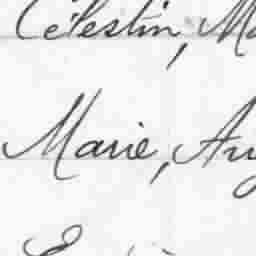 Célestin, Ma
Marie, Au